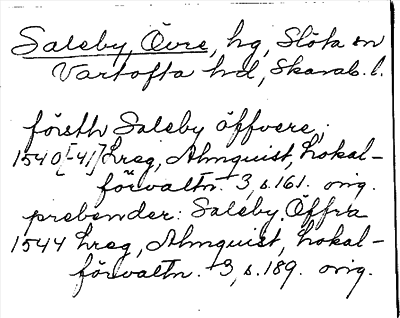 Saleby, Övre, hg, Slöta sn
Vartofta hd, Skarab. l.
försth Saleby öffvere,
1540[-41] hreg, Almquist, Lokal-
förvaltn. 3, s. 161. orig.
prebender: Saleby, Öffra
1544 hreg, Almquist, Lokal-
förvaltn. 3, s. 189. orig.